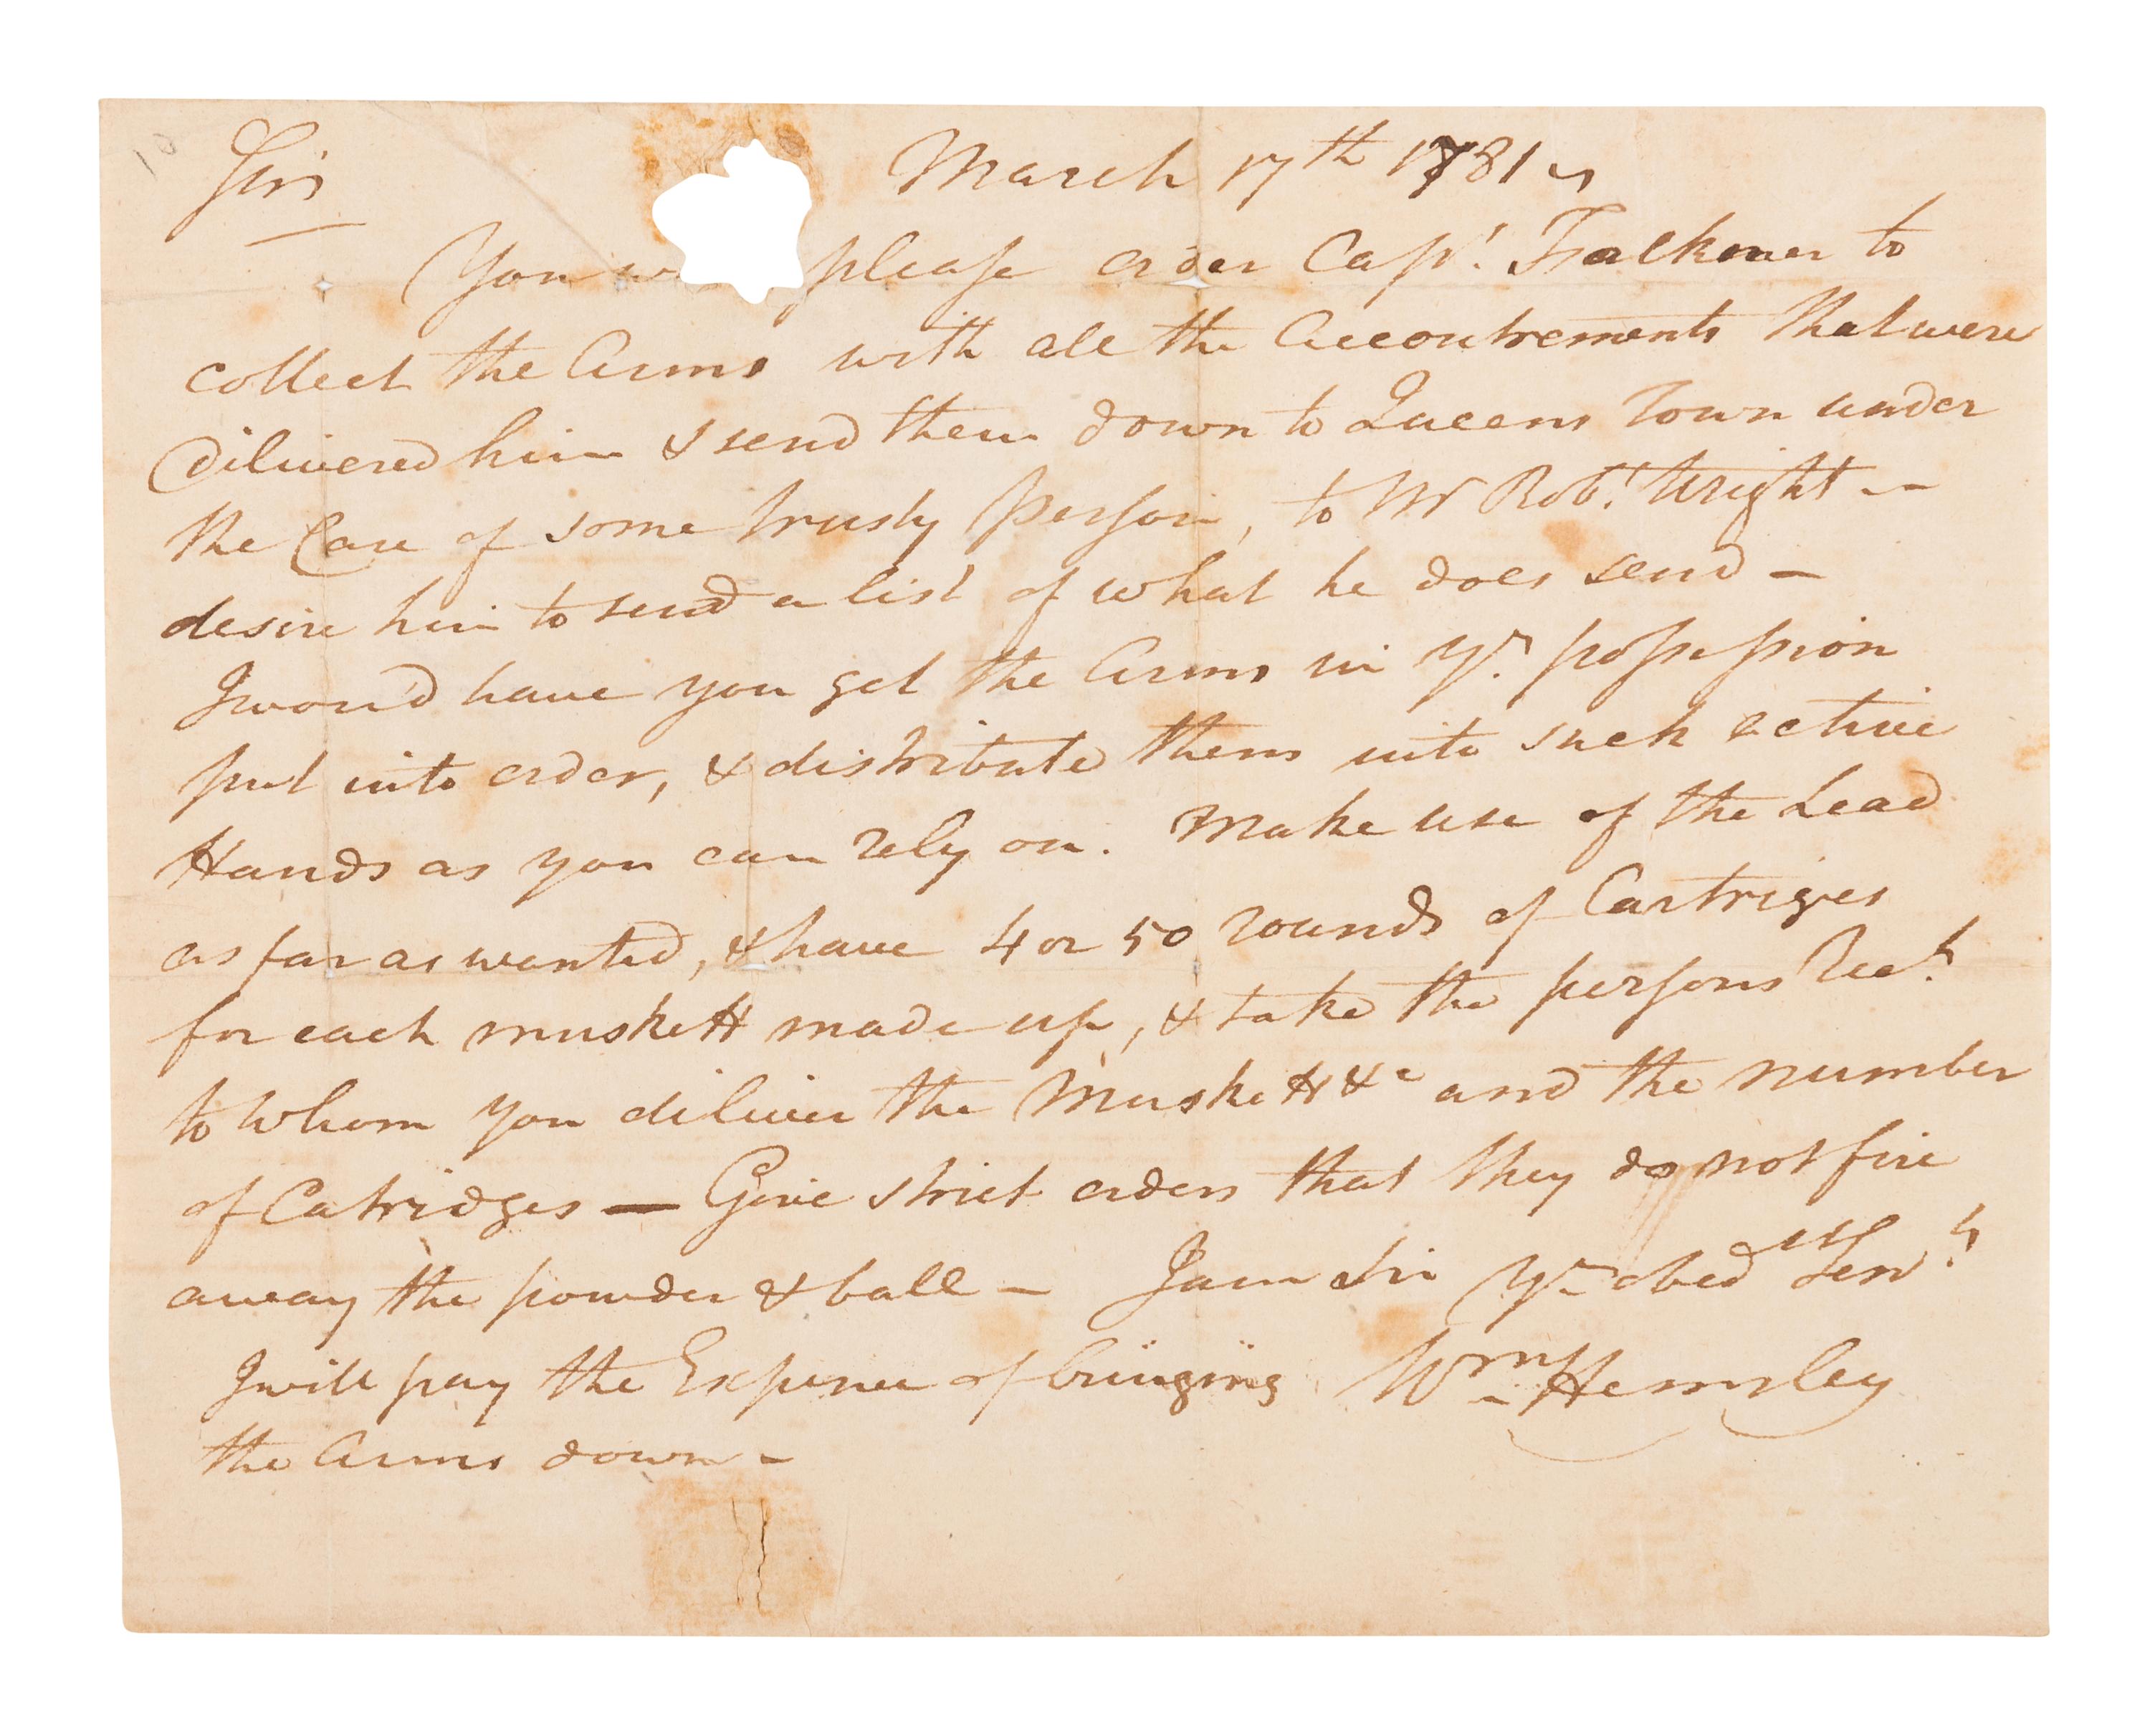 Sir March 17th 1781
You please order Capt. Falkner to
collect the Arms with all the Accoutrements that were
dilivered him & send them down to Queens Town under
the Care of some trusty person, to Mr Robt. Wright --
desire him to send a list of what he does send -
I wou'd have you get the Arms in yr. possession
put into order, & distribute them into such active
Hands as you can rely on. Make use of the Lead
as far as wanted, & have 4 or 50 rounds of Cartriges
for each muskett made up, & take the persons Rect.
to whom you diliver the Muskett &c and the number
of Catridges — Give strict orders that they do not fire
away the powder & ball - I am Sir Yr obed Servt
I will pay the Expence of bringing Wm Hemsley
the Arms down -